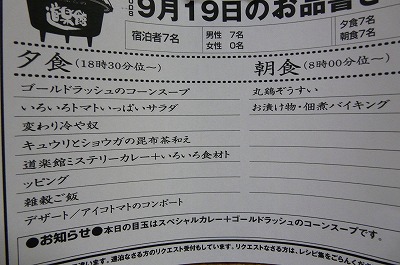 道楽館
9月19日のお品書き
宿泊者7名
男性 7名
女性 0名
夕食7名
朝食7名
夕食(18時30分位~)
ゴールドラッシュのコーンスープ
いろいろトマトいっぱいサラダ
変わり冷や奴
キュウリとショウガの昆布茶和え
道楽館ミステリーカレー+いろいろ食材ト
ッピング
雑穀ご飯
デザート/アイコトマトのコンポート
朝食(8時00分位~)
丸鶏ぞうすい
お漬け物・佃煮バイキング
●お知らせ●本日の目玉はスペシャルカレー+ゴールドラッシュのコーンスープです。
違います。連泊なさる方のリクエスト受付もしています。リクエストなさる方は、レシピ集をごらんくだ